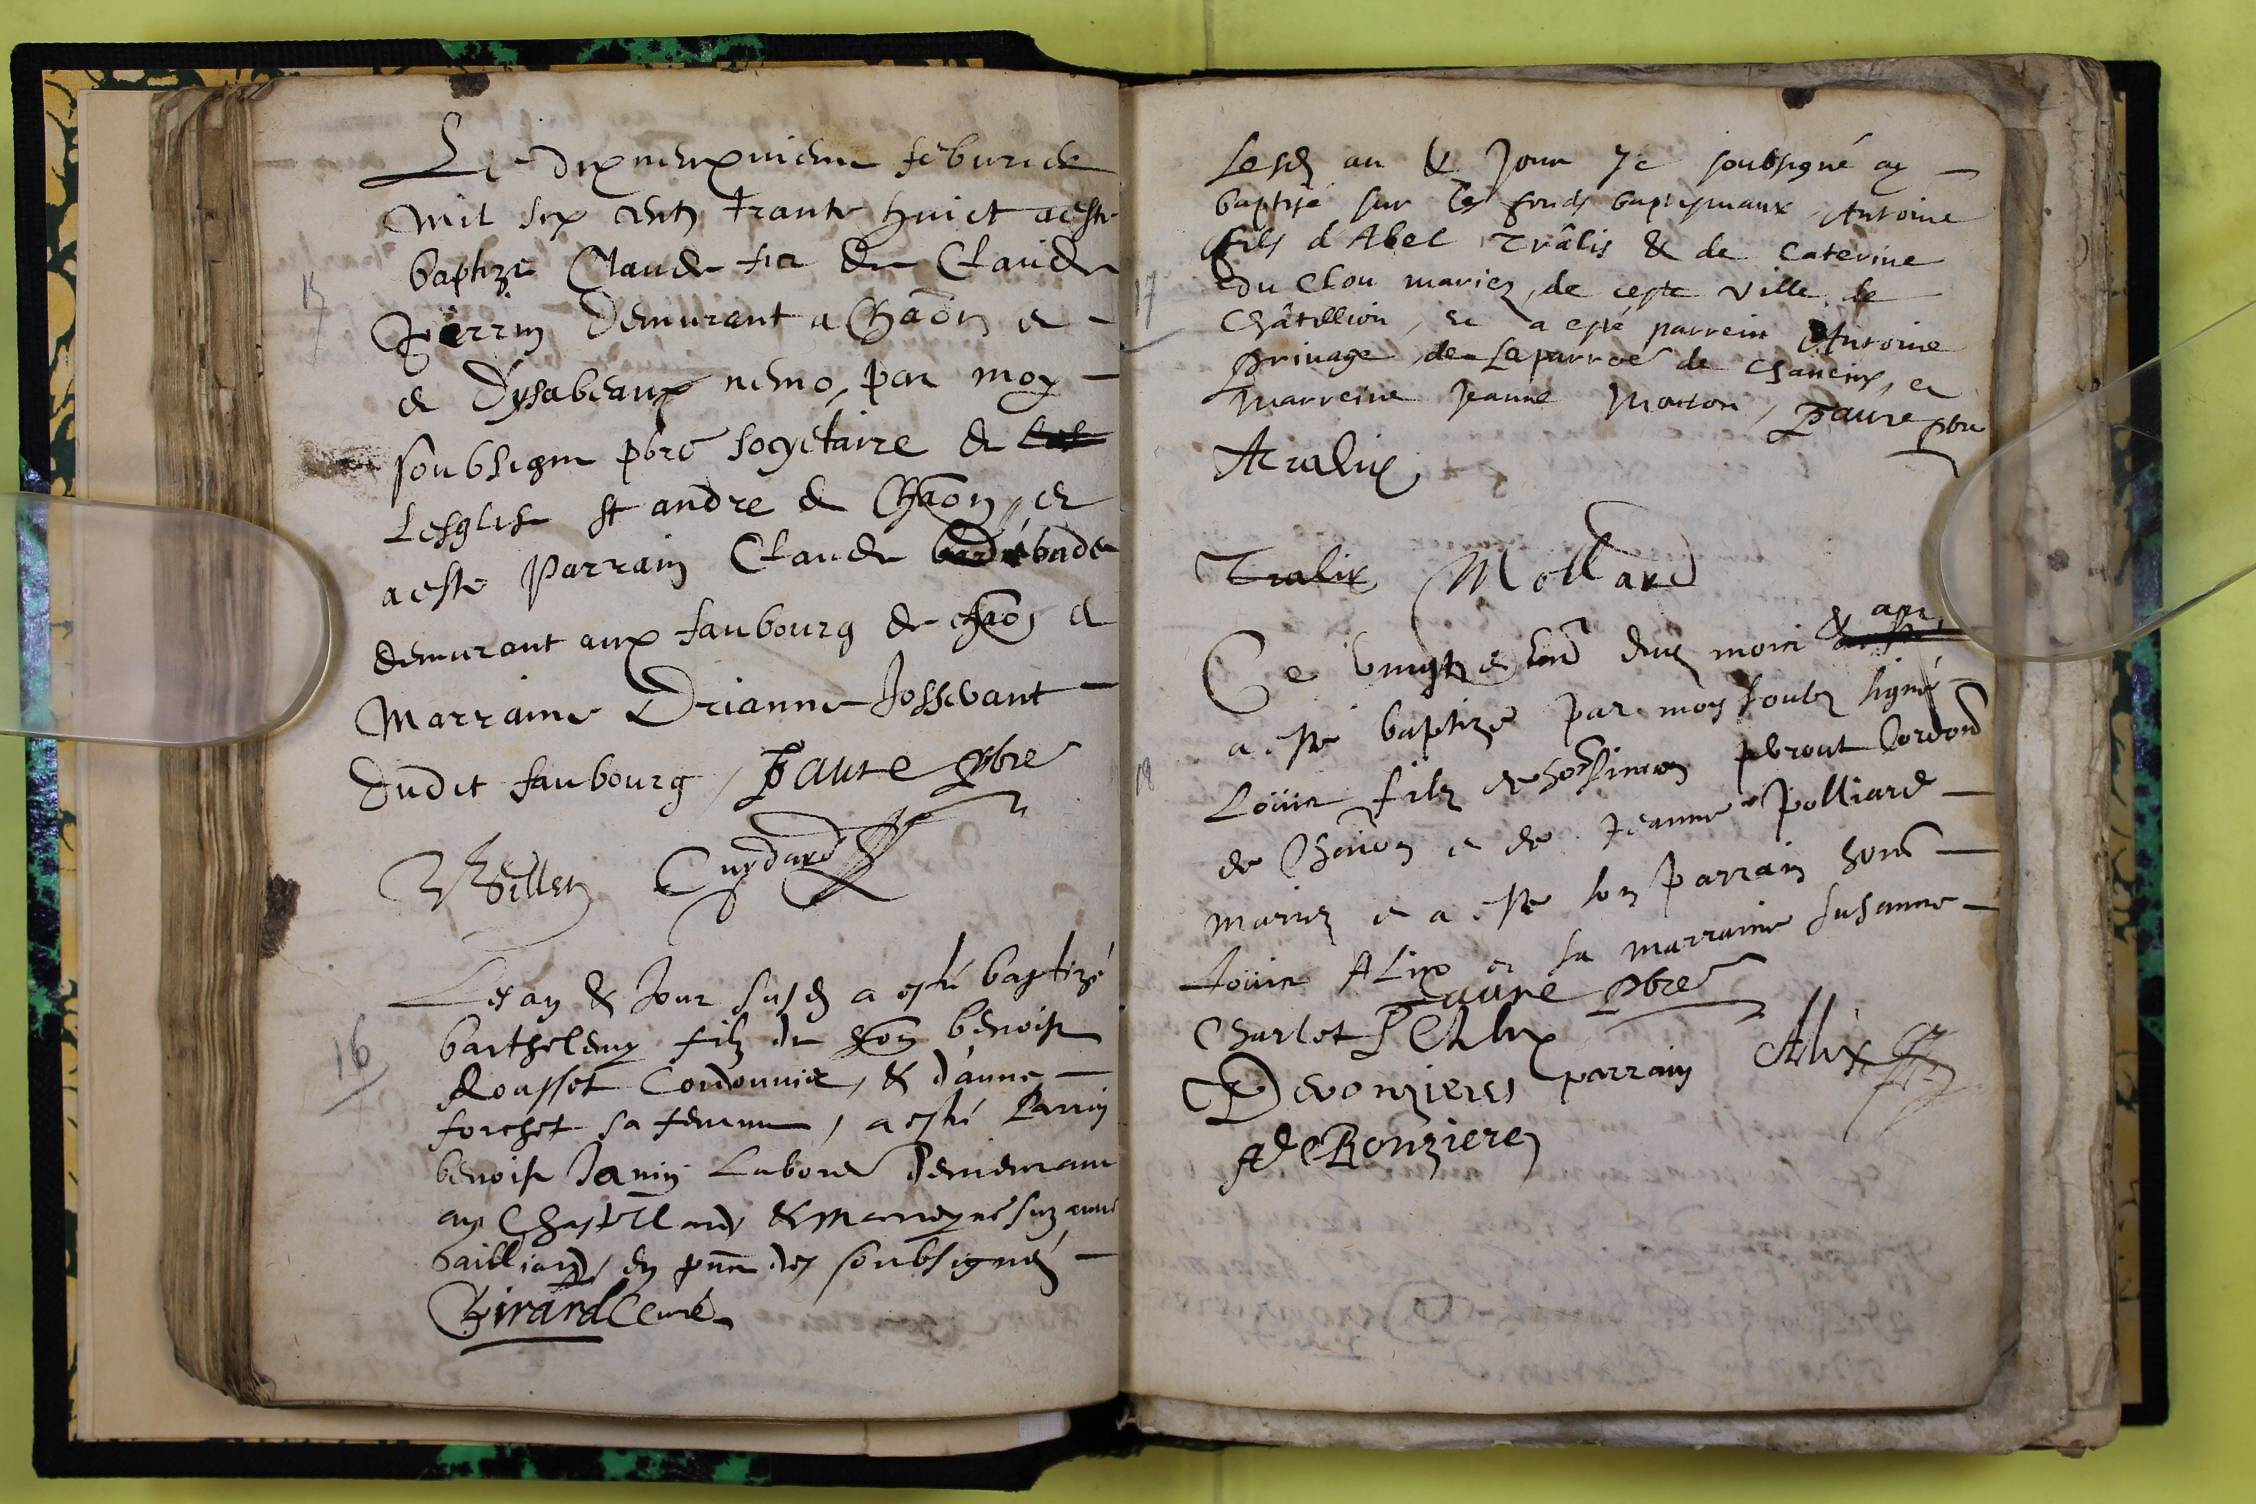 Le dixneufvieme febvrier
mil six cents trante huict a esté
baptize Claude fis de Claude
perrin demurant a Chaōn et
et dysabeaux nemo, par moy
soubsigne pbre socyétaire de
Lesglise st andre de Chaōn, et
a este parrain Claude
demurant aux faubourg de chaōn et
marraine Drianne Jossevant
dudit faubourg, Faure pbre
Cuydard
Les an & Jour susd a esté baptizé
16
barthelemy filz de hon benoist
Roasset Cordonnier, & d'anne
forchet sa femme, a esté parrin
benoist Janin Labour demeurant
au Chastellard & marreyne suzanne
bailliard, en pnce des soubsignés
Girard Curé
Lesd an & Jour Je soubsigné ay
baptisé sur les fonds baptismaux Antoine
fils d'Abel Trâlis & de Caterine
17
du Clou mariez, de ceste ville de
Châtillion, et a esté parrein Antoine
privage de la parroē de Chaneins, et
marreine Jeanne Monton, Faure pbre
Atralix
Tralix Mollard
Ce vingt et un dud mois & an
a esté baptize par moy soubz signé
Louis filz de hon Simon perrout Cordon
18
de Chaōn et de Jeanne Polliard
mariez et a esté son parrain hon
Louis Alix et sa marraine Susanne
Charlet Faure pbre
L Alix parrain Alix
Deronzieres
A de Ronzieres